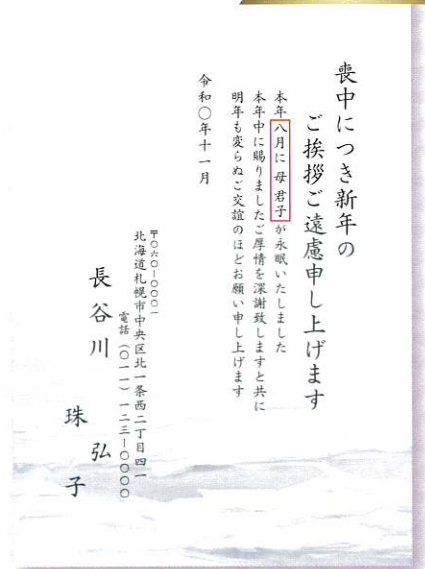 喪中につき新年の
ご挨拶ご遠慮申し上げます
本年八月に 母 君子が永眠いたしました
本年中に賜りましたご厚情を深謝致しますと共に
明年も変らぬご交誼のほどお願い申し上げます
令和〇年十一月
〒〇六〇ー〇〇〇一
北海道札幌市中央区北一条西二丁目四ー一
電話(〇一一)一二三ー〇〇〇〇
長谷川 弘
珠子